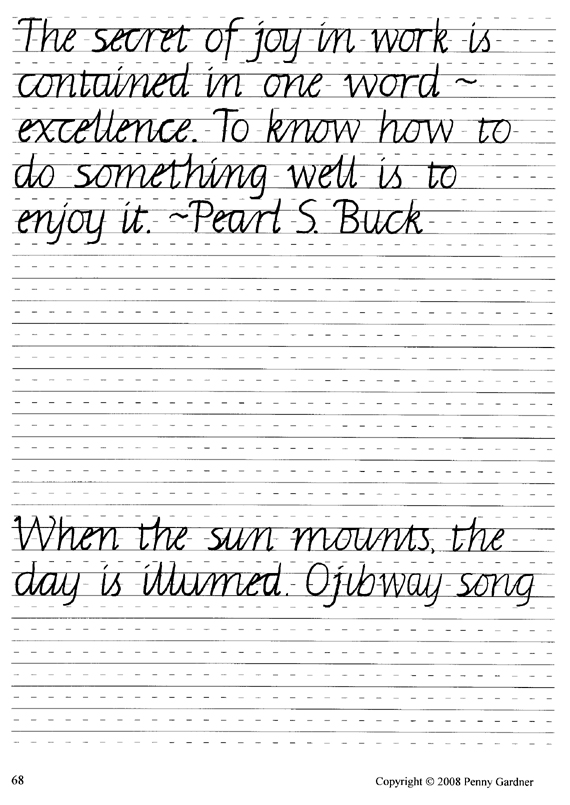 The secret of joy in work is
contained in one word ~
excellence. To know how to
do something well is to
enjoy it. ~Pearl S. Buck
When the sun mounts, the
day is illumed. Ojibway song
68
Copyright © 2008 Penny Gardner